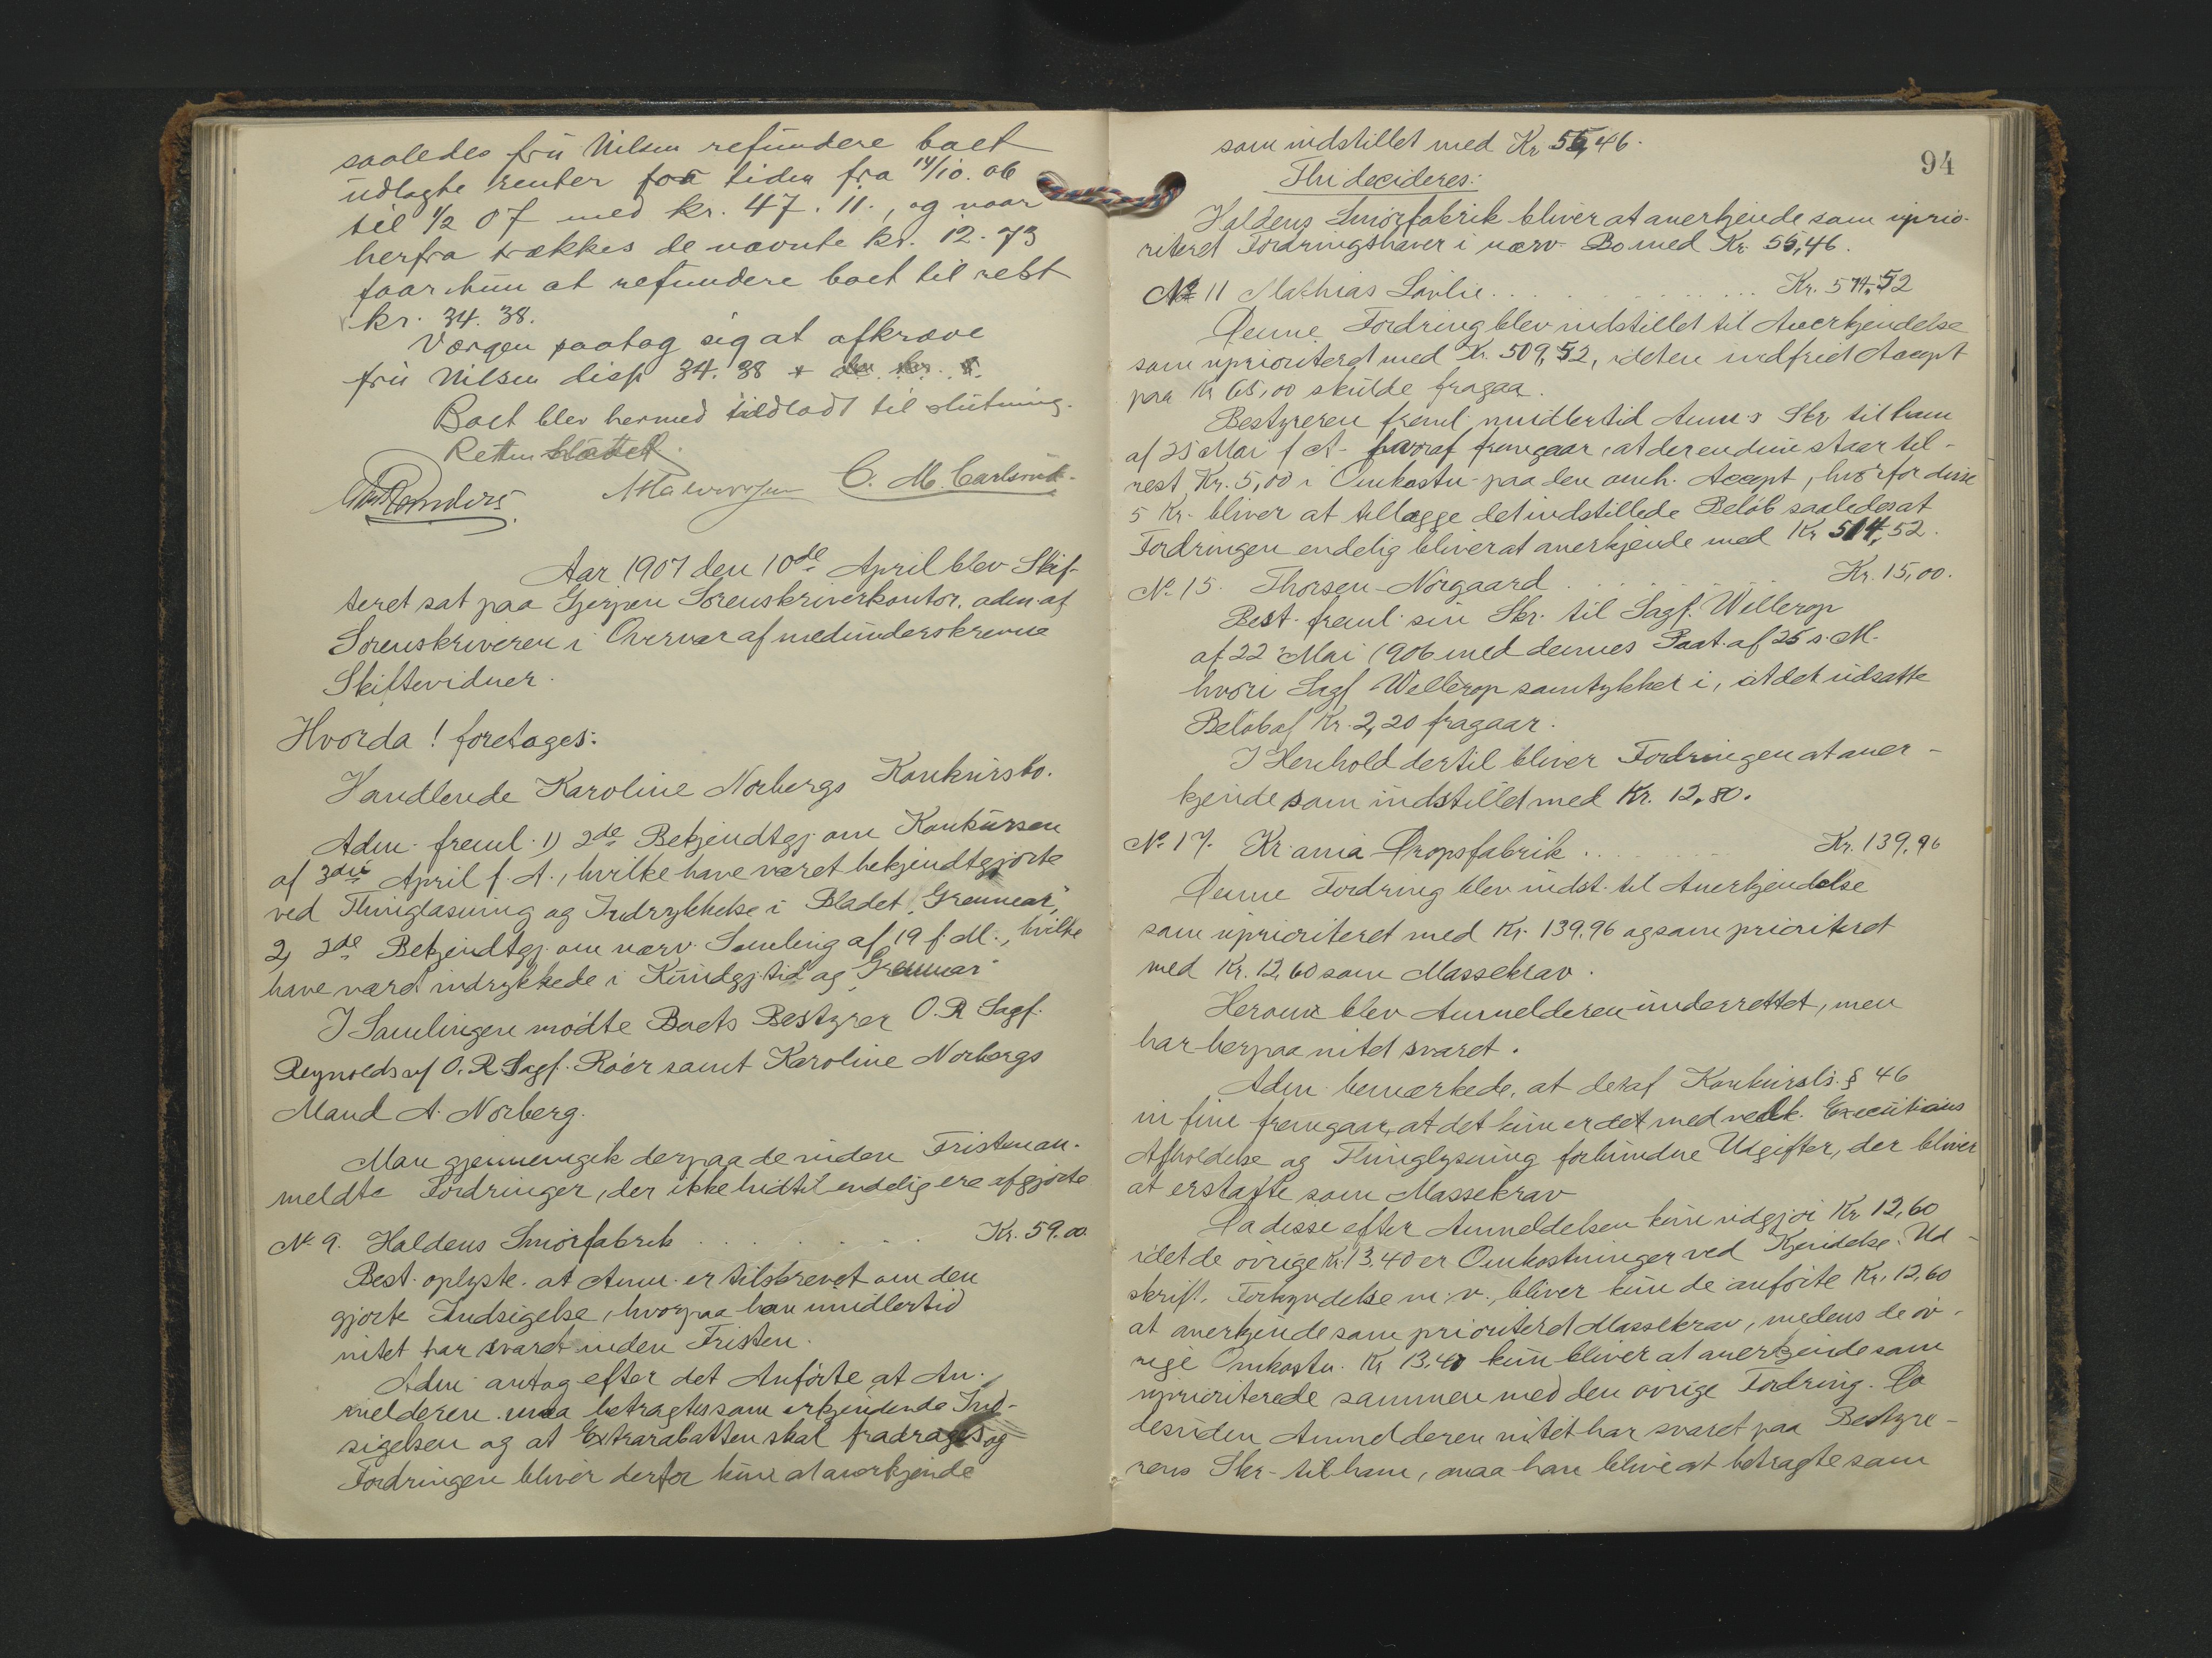 saaledes fru Nilsen refundere boet
udlagte renter for tiden fra 14/10. 06
til 1/2 07 med kr. 47. 11., og naar
herfra trækkes de nævnte kr. 12. 73
faar hun at refundere boet til rest
kr. 34. 38.
Værgen paatog sig at afkræve
fru Nilsen disp 34. 38
Boet blev hermed tilladt til slutning.
Retten hævet
C. M. Carlsrud
Aar 1907 den 10de April blev Skif-
teret sat paa Gjerpen Sorenskriverkontor. adm. af
Sorenskriveren i Overvær af medunderskrevne
Skiftevidner.
Hvorda! foretages:
Handlende Karoline Norbergs Konkursbo.
Adm. freml. 1) 2de Bekjendtgj. om Konkursen
af 3die April f. A., hvilke have været bekjendtgjorte
ved Thinglæsning og Indrykkelse i Bladet "Grenmar",
2, 2de Bekjendtgj. om nærv. Samling af 19 f. M., hvilke
have været indrykkede i Kundgj.tid og "Grenmar"
I Samlingen mødte Boets Bestyrer O. R. Sagf.
Reynolds ved O. R. Sagf. Roér samt Karoline Norbergs
Mand A. Norberg.
Man gjennemgik derpaa de inden Fristen an-
meldte Fordringer, der ikke hidtil endelig ere afgjorte
No 9. Haldens Smørfabrik . . . . . . . Kr. 59.00.
Best. oplyste. at Anm. er tilskrevet om den
gjorte Indsigelse, hvorpaa han imidlertid
intet har svaret inden Fristen.
Adm. antog efter det Anførte at An-
melderen maa betragtes som erkjendende Ind-
sigelsen og at Extrarabatten skal fradrages og
Fordringen bliver derfor kun at anerkjende
94
som indstillet med Kr 55,46.
Thi decideres:
Haldens Smørfabrik bliver at anerkjende som uprio-
riteret Fordringshaver i nærv. Bo med Kr. 55,46.
No 11 Mathias Løvlie . . . . . . . . . Kr. 574.52
Denne Fordring blev indstillet til Anerkjendelse
som uprioriteret med Kr. 509,52, idet en indfriet Accept
paa Kr 65,00 skulde fragaa.
Bestyreren freml. imidlertid Anm.s Skr. til ham
af 25 Mai f. A. hvoraf fremgaar, at der endnu staar til-
rest Kr. 5,00 i Omkostn. paa den omh. Accept, hvorfor disse
5 Kr. bliver at tillægge det indstillede Beløb saaledes at
Fordringen endelig bliver at anerkjende med Kr 514,52.
No 15. Thorsen-Nørgaard . . . . . . . Kr. 15,00.
Best. freml. sin Skr. til Sagf. Willerop
af 22 Mai 1906 med dennes Paat. af 25 s. M.
hvori Sagf Willerop samtykker i, at det udsatte
Beløb af Kr. 2,20 fragaar.
I Henhold dertil bliver Fordringen at aner-
kjende som indstillet med Kr. 12,80.
No 17. Kr.ania Dropsfabrik . . . . . . Kr. 139,96
Denne Fordring blev indst. til Anerkjendelse
som uprioriteret med Kr. 139.96 og som prioriteret
med Kr. 12,60 som Massekrav.
Herom blev Anmelderen underrettet, men
har herpaa intet svaret.
Adm. bemærkede, at det af Konkursls. § 46
in fine fremgaar, at det kun er det med vedk. Executions
Afholdelse og Thinglysning forbundne Udgifter, der bliver
at erstatte som Massekrav
Da disse efter Anmeldelsen kun udgjør Kr 12,60
idet de øvrige Kr. 13,40 er Omkostninger ved Kjendelse. Ud-
skrift. Forkyndelse m. v., bliver kun de anførte Kr. 12,60
at anerkjende som prioriteret Massekrav, medens de øv-
rige Omkostn. Kr 13,40 kun bliver at anerkjende som
uprioriterede sammen med den øvrige Fordring. Da
desuden Anmelderen intet har svaret paa Bestyre-
rens Skr. til ham, maa han blive at betragte som